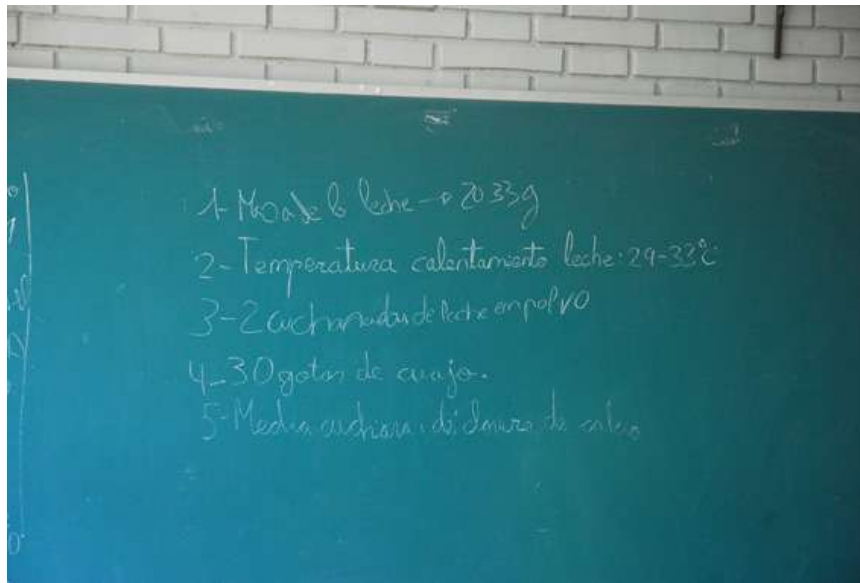 1- Masa de la leche → 2033g
2- Temperatura calentamiento leche: 29-33°C
3- 2 cucharadas de leche en polvo
4- 30 gotas de cuajo.
5- Media cuchara de cloruro de calcio